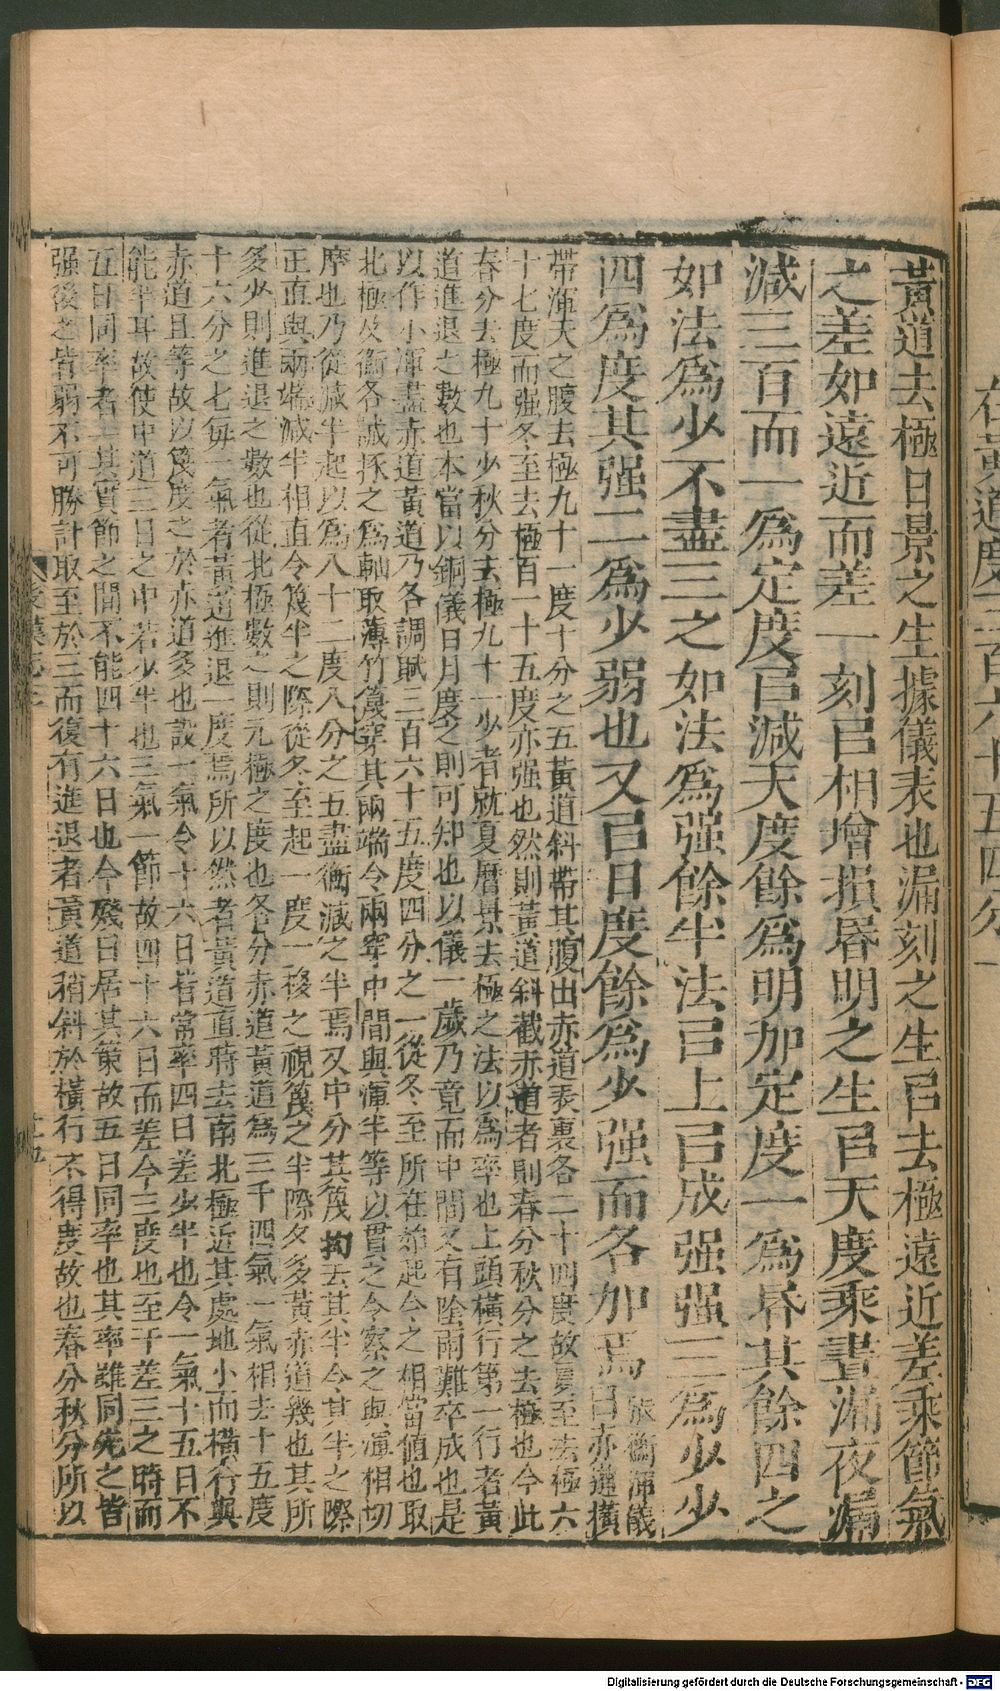 在黃道度三百六十五四分一
黃道去極日景之生據儀表也漏刻之生㠯去極遠近差乘節氣
之差如遠近而差一刻㠯相增損昬明之生㠯天度乘晝漏夜漏
減三百而一爲定度㠯減天度餘爲明加定度一爲昬其餘四之
如法爲少不盡三之如法爲强餘半法㠯上㠯成强强三爲少少
四爲度其强二爲少弱也又㠯日度餘爲少强而各加焉張衡渾儀
曰赤道橫
帶渾天之腹去極九十一度十分之五黃道斜帶其腹出赤道表裏各二十四度故夏至去極六
十七度而强冬至去極百一十五度亦强也然則黃道斜截赤道者則春分秋分之去極也今此
春分去極九十少秋分去極九十一少者就夏曆景去極之法以爲率也上頭橫行第一行者黃
道進退之數也本當以銅儀日月度之則可知也以儀一歲乃竟而中間又有陰雨難卒成也是
以作小渾盡赤道黃道乃各調賦三百六十五度四分之一從冬至所在始起令之相當值也取
北極及衡各誠㧻之爲軸取薄竹篾穿其兩端令兩穿中間與渾半等以貫之令察之與渾相切
摩也乃從減半起以爲八十二度八分之五盡衡減之半焉又中分其篾拘去其半令其半之際
正直與兩端減半相直令篾半之際從冬至起一度一移之視篾之半際夕多黃赤道幾也其所
多少則進退之數也從北極數之則元極之度也各分赤道黃道爲三千四氣一氣相去十五度
十六分之七每一氣者黃道進退一度焉所以然者黃道直時去南北極近其處地小而橫行與
赤道且等故以篾度之於赤道多也設一氣令十六日皆常率四日差少半也令一氣十五日不
能半耳故使中道三日之中若少半也三氣一節故四十六日而差今三度也至于差三之時而
五日同率者一其實節之間不能四十六日也今殘日居其策故五日同率也其率雖同先之皆
强後之皆弱不可勝計取至於三而復有進退者黃道稍斜於橫行不得度故也春分秋分所以
Digitalisierung gefördert durch die Deutsche Forschungsgemeinschaft - DFG